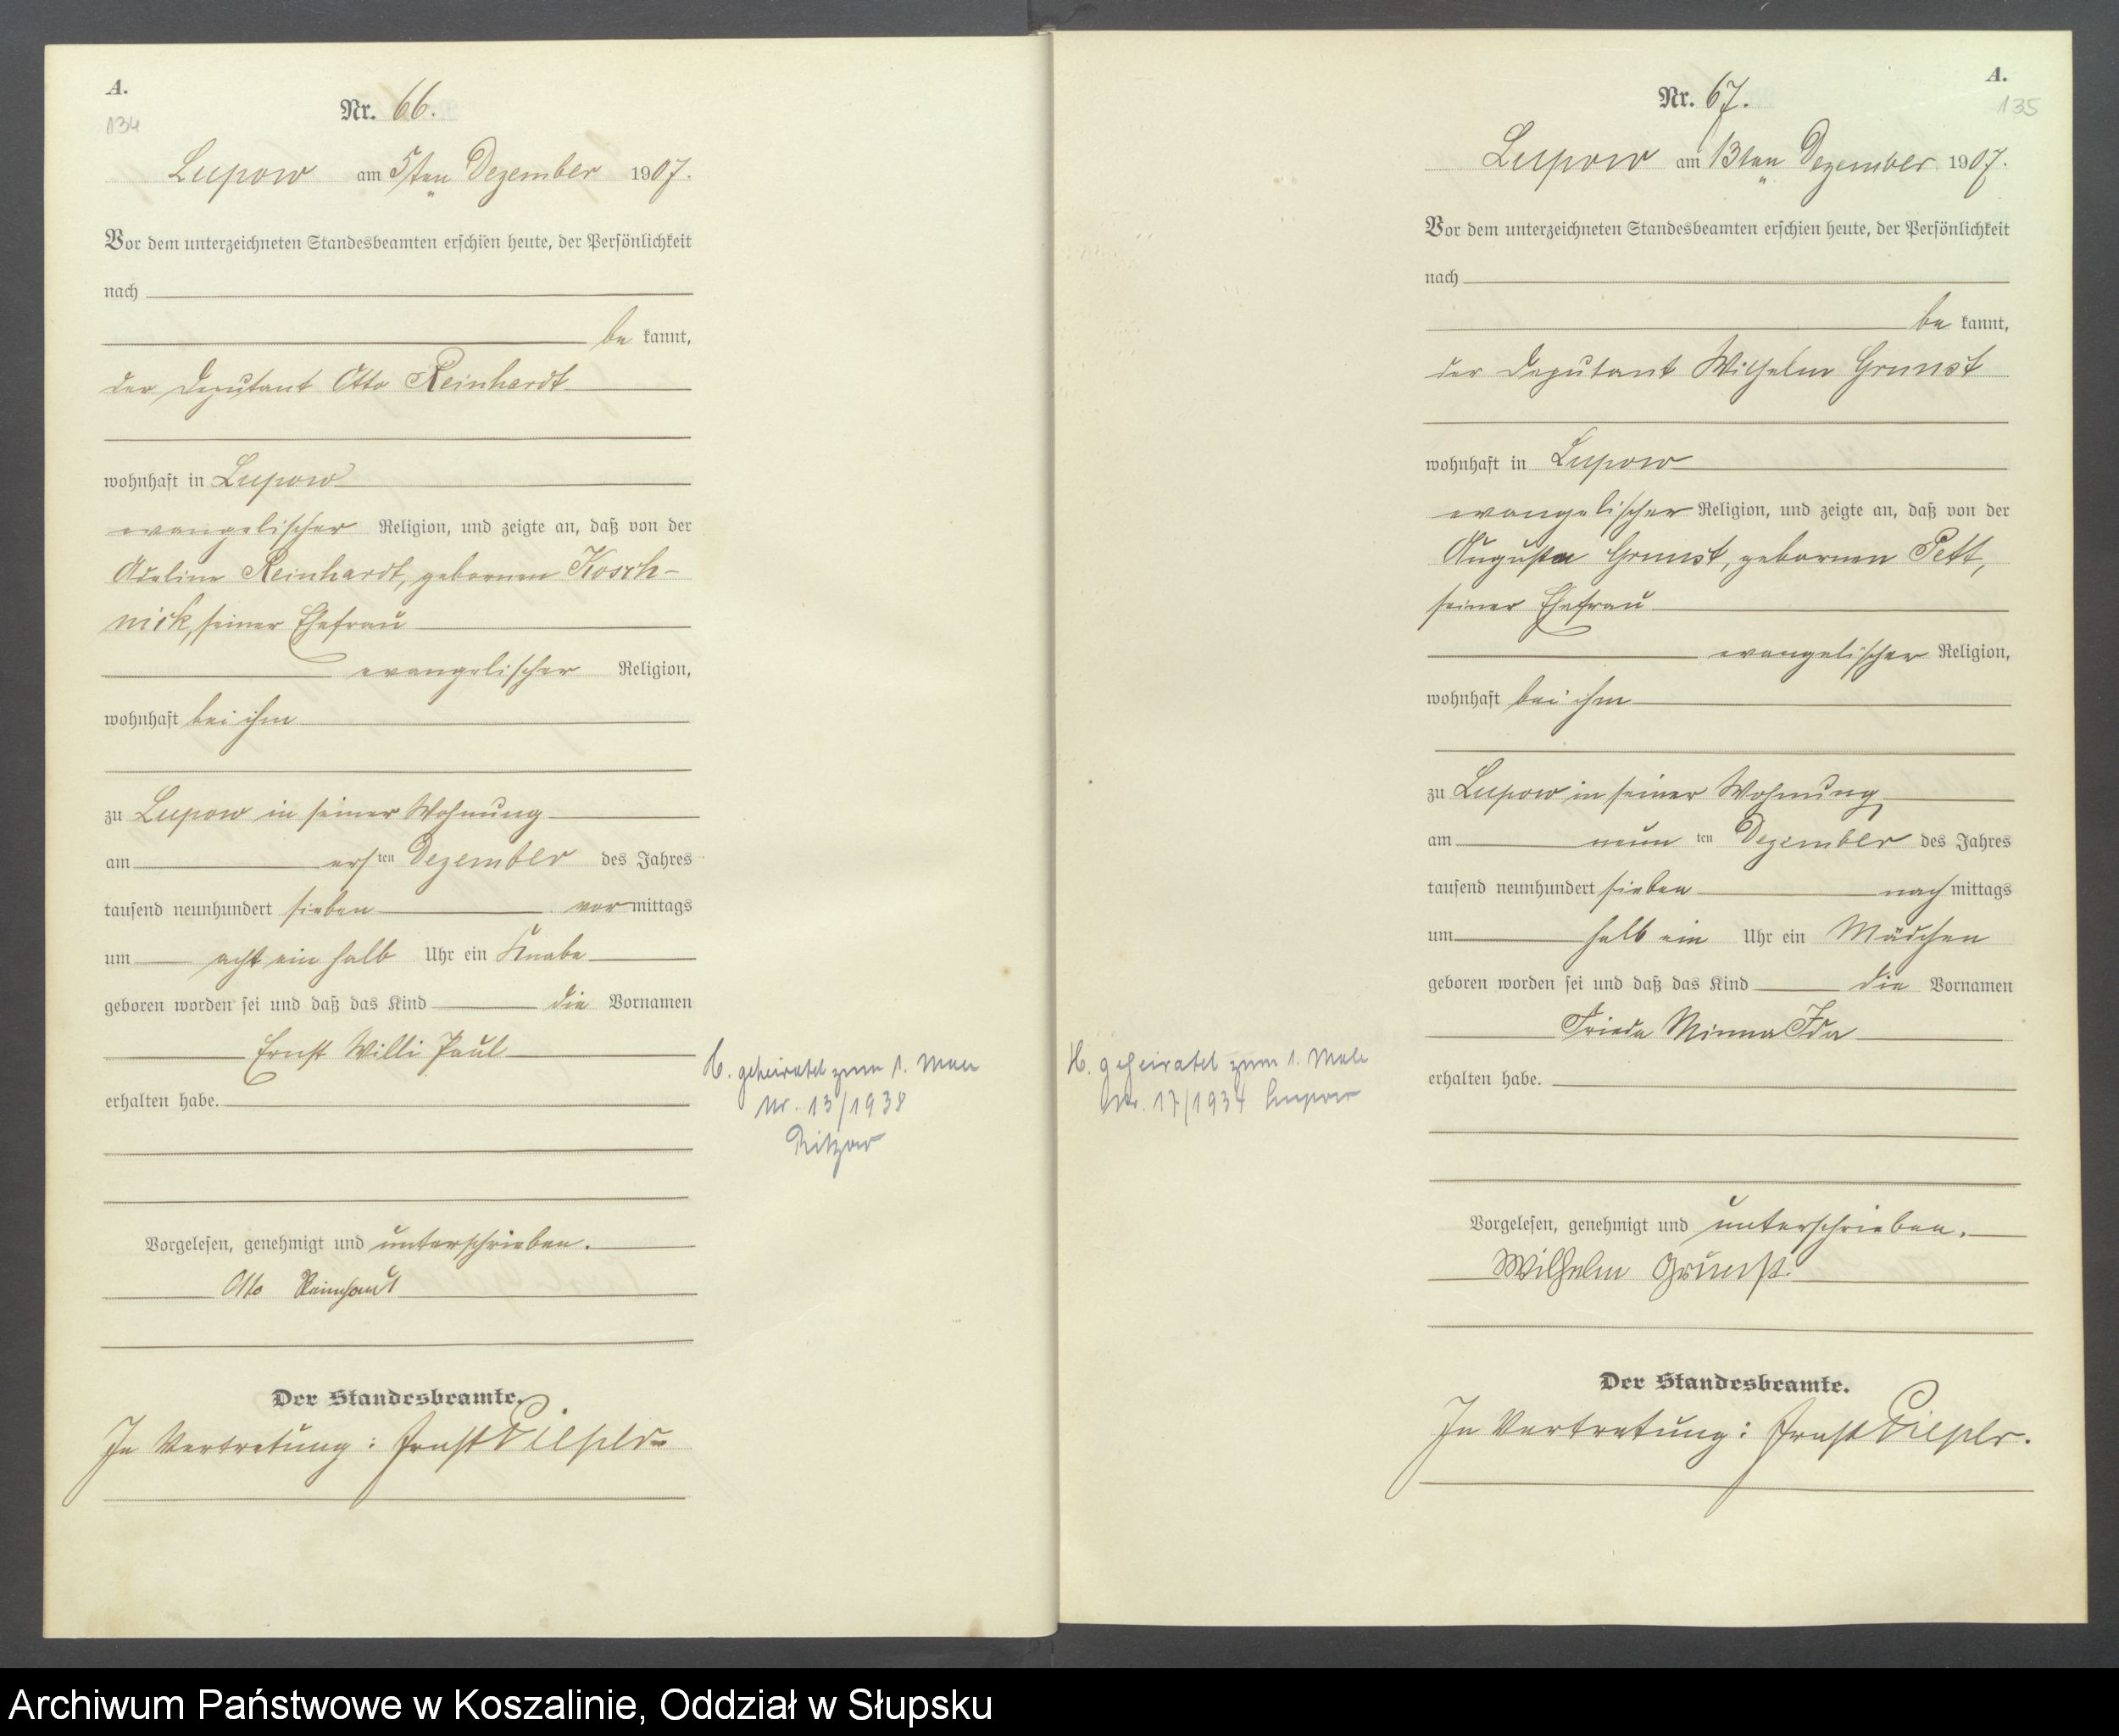 A.
134
Nr. 66.
Lupow am 5ten Dezember 1907.
Vor dem unterzeichneten Standesbeamten erschien heute, der Persönlichkeit
nach
be kannt,
der Deputant Otto Reinhardt
wohnhaft in Lupow
evangelischer Religion, und zeigte an, daß von der
Adeline Reinhardt, geborenen Kosch-
nick, seiner Ehefrau
evangelischer Religion,
wohnhaft bei ihm
zu Lupow in seiner Wohnung
am ersten Dezember des Jahres
tausend neunhundert sieben vormittags
um acht ein halb Uhr ein Knabe
geboren worden sei und daß das Kind die Vornamen
Ernst Willi Paul
erhalten habe.
H. geheiratet zum 1. Male
Nr. 13/1938
Vorgelesen, genehmigt und unterschrieben.
Otto Reinhardt
Der Standesbeamte.
In Vertretung: Ernst
A.
135
Nr. 67.
Lupow am 13ten Dezember 1907.
Vor dem unterzeichneten Standesbeamten erschien heute, der Persönlichkeit
nach
be kannt,
der Deputant Wilhelm Grunst
wohnhaft in Lupow
evangelischer Religion, und zeigte an, daß von der
Auguste Grunst, geborenen Pett,
seiner Ehefrau
evangelischer Religion,
wohnhaft bei ihm
zu Lupow in seiner Wohnung
am neunten Dezember des Jahres
tausend neunhundert sieben nachmittags
um halb ein Uhr ein Mädchen
geboren worden sei und daß das Kind die Vornamen
Frieda Minna Ida
erhalten habe.
H. geheiratet zum 1. Male
Nr. 17/1934 Lupow
Vorgelesen, genehmigt und unterschrieben.
Wilhelm Grunst.
Der Standesbeamte.
In Vertretung: Ernst
Archiwum Państwowe w Koszalinie, Oddział w Słupsku